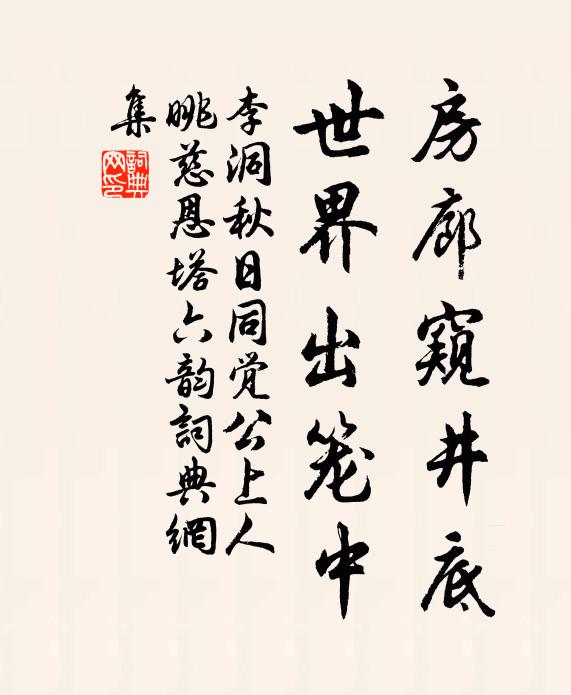 房廊窺井底
世界出笼中
李洞秋日同觉公上人
眺慈恩塔六韵詞典網
集
詞典
网印